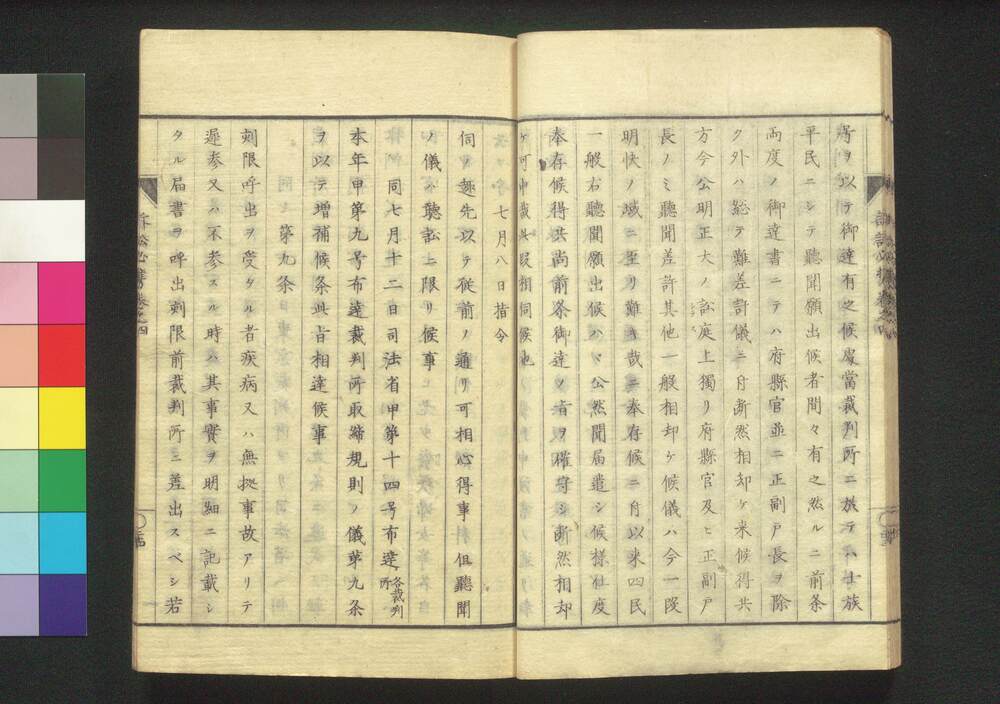 旨ヲ以テ御達有之候處當裁判所ニ於テハ士族
平民ニシテ聽聞願出候者間々有之然ルニ前条
両度ノ御達書ニテハ府縣官並ニ正副戸長ヲ除
ク外ハ総テ難差許儀ニ付断然相却ケ来候得共
方今公明正大ノ訟庭上獨リ府縣官及ヒ正副戸
長ノミ聽聞差許其他一般相却ケ候儀ハ今一段
明快ノ域ニ至リ難キ哉ニ奉存候ニ付以来四民
一般右聽聞願出候ハヽ公然聞届遣シ候様仕度
奉存候得共尚前条御達ノ旨ヲ確守シ断然相却
ケ可申哉此段相伺候也
七月八日指令
伺ノ趣先以テ従前ノ通リ可相心得事 但聽聞
ノ儀ハ聽訟ニ限リ候事
同七月十二日司法省申第十四号布達 各裁判所
本年申第九号布達裁判所取締規則ノ儀第九条
ヲ以テ増補候条此旨相達候事
第九条
刻限呼出ヲ受タル者疾病又ハ無拠事故アリテ
遅参又ハ不参スル時ハ其事實ヲ明細ニ記載シ
タル届書ヲ呼出刻限前裁判所ニ差出スベシ若
訴訟必携巻之四